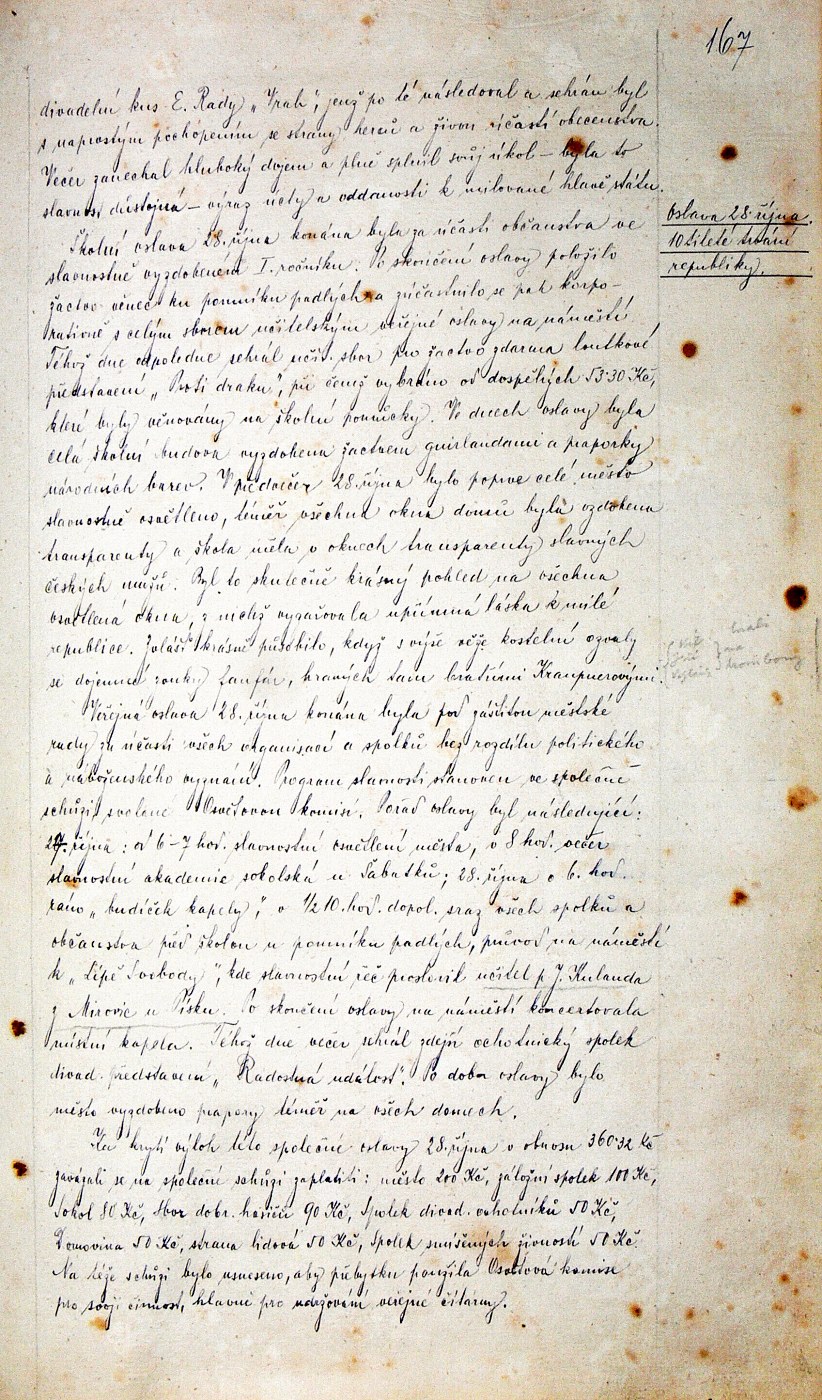 167
divadelní kus E. Rady „Vrah“, jenž po té následoval a sehrán byl
s naprostým pochopením se strany herců a živou účastí obecenstva.
Večer zanechal hluboký dojem a plně splnil svůj úkol – byla to
slavnost důstojná – výraz úcty a oddanosti k milované hlavě státu.
Oslava 28. října.
10tileté trvání
republiky.
Školní oslava 28. října konána byla za účasti občanstva ve
slavnostně vyzdobeném I. ročníku. Po skončení oslavy položilo
žactvo věnec ku pomníku padlých a zúčastnilo se pak korpo-
rativně s celým sborem učitelským veřejné oslavy na náměstí
Téhož dne odpoledne sehrál učit. sbor pro žactvo zdarma loutkové
představení „Proti draku“, při čemž vybráno od dospělých 53·30 Kč,
které byly věnovány na školní pomůcky. Ve dnech oslavy byla
celá školní budova vyzdobena žactvem guirlandami a praporky
národních barev. V předvečer 28. října bylo poprve celé město
slavnostně osvětleno, téměř všechna okna domů byla vzdobena
transparenty a škola měla v oknech transparenty slavných
českých mužů. Byl to skutečně krásný pohled na všechna
osvětlená okna, z nichž vyzařovala upřímná láska k milé
republice. Zvláště krásně působilo, když s výše věže kostelní ozvaly
se dojemné zvuky fanfár, hraných tam bratřími Kraupnerovými.
hráli
na
Veřejná oslava 28. října konána byla pod záštitou městské
rady za účasti všech organisací a spolků bez rozdílu politického
a náboženského vyznání. Program slavnosti stanoven ve společné
schůzi, svolané Osvětovou komisí. Pořad oslavy byl následující:
27. října: od 6–7 hod. slavnostní osvětlení města, v 8 hod. večer
slavnostní akademie sokolská u Šabatků; 28. října o 6. hod.
ráno „budíček kapely“, o 1/2 10. hod. dopol. sraz všech spolků a
občanstva před školou u pomníku padlých, průvod na náměstí
k „Lípě Svobody“, kde slavnostní řeč proslovil učitel p. J. Kulanda
z Mirovic u Písku. Po skončení oslavy na náměstí koncertovala
místní kapela. Téhož dne večer sehrál zdejší ochotnický spolek
divad. představení „Radostná událost“. Po dobu oslavy bylo
město vyzdobeno prapory téměř na všech domech.
Ku krytí výloh této společné oslavy 28. října v obnosu 360·32 Kč
zavázali se na společné schůzi zaplatiti: město 200 Kč, záložní spolek 100 Kč,
Sokol 80 Kč, Sbor dobr. hasičů 90 Kč, Spolek divad. ochotníků 50 Kč,
Domovina 50 Kč, strana lidová 50 Kč, Spolek smíšených živností 50 Kč.
Na téže schůzi bylo usneseno, aby přebytku použila Osvětová komise
pro svoji činnost, hlavně pro udržování veřejné čítárny.